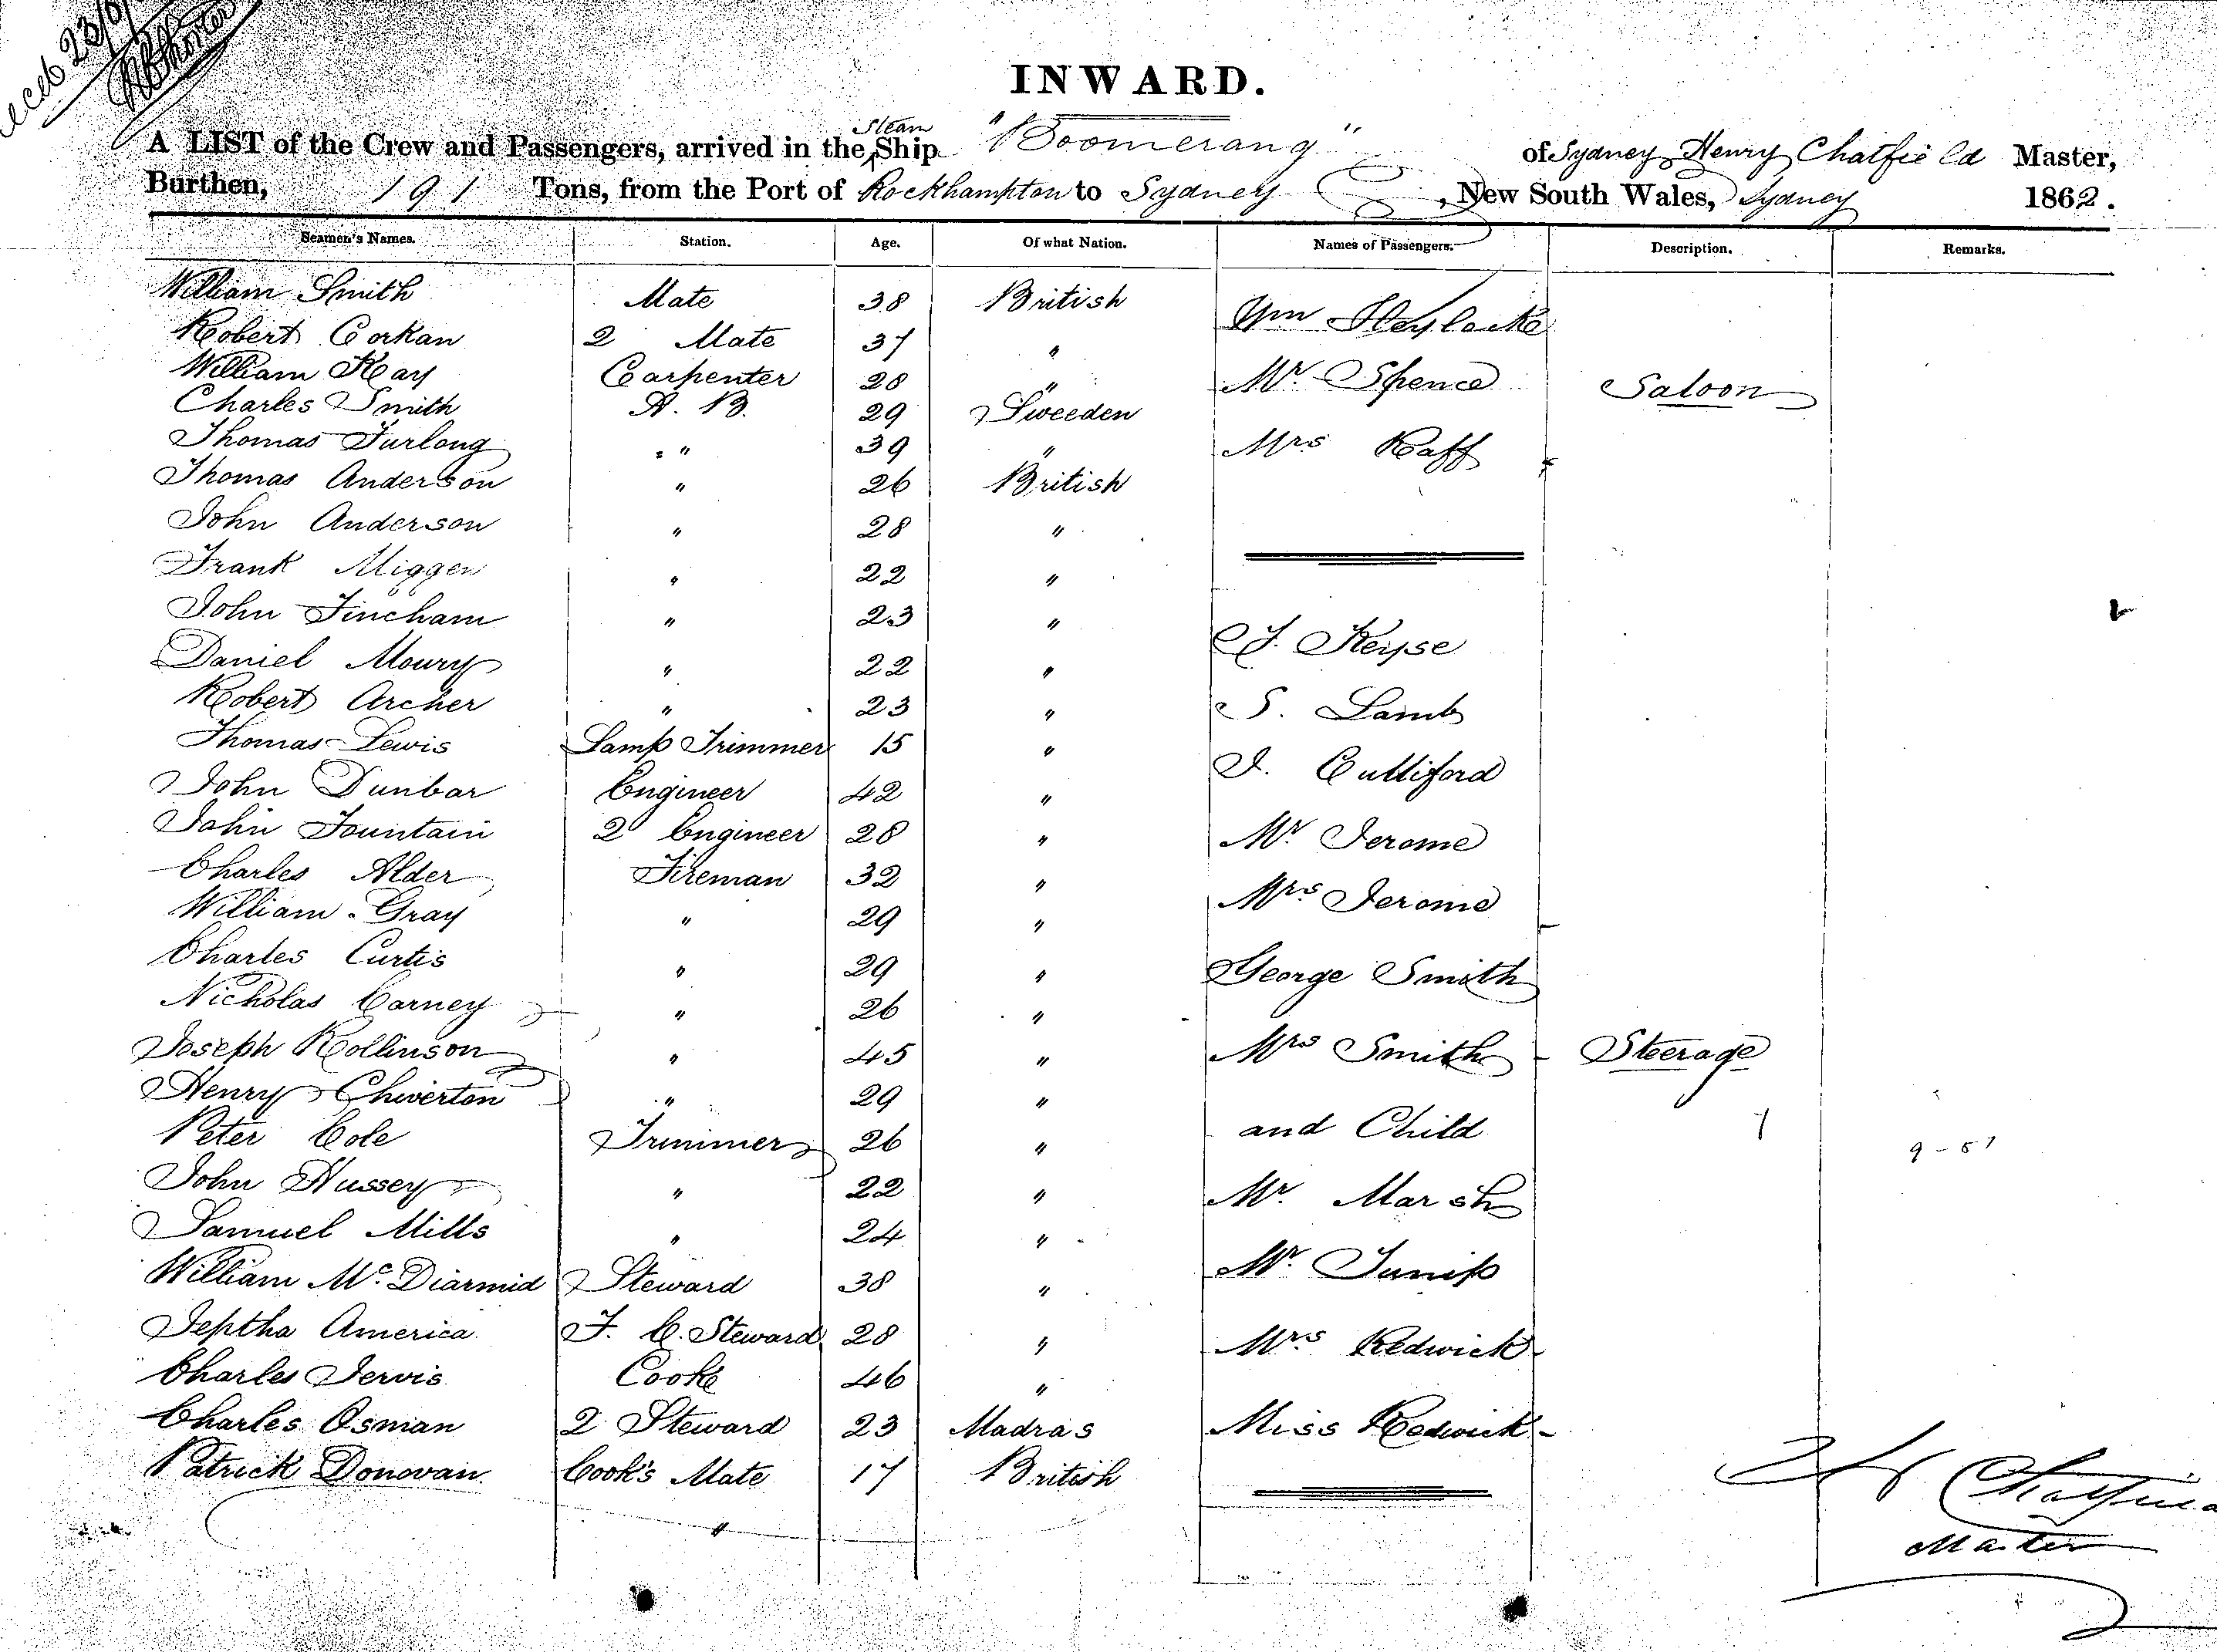 INWARD.
A LIST of the Crew and Passengers, arrived in the Steam Ship "Boomerang" of Sydney, Henry Chatfield Master,
Burthen, 191 Tons, from the Port of Rockhampton to Sydney, New South Wales, Sydney 1862.
Seamen's Names. Station. Age. Of what Nation. Names of Passengers. Description. Remarks.
William Smith Mate 38 British
Wm
Robert Corkan 2 Mate 37 "
William Kay Carpenter 28 " Mr Spence Saloon
Charles Smith A. B. 29 Sweeden
Thomas Furlong " 39 " Mrs Raff
Thomas Anderson " 26 British
John Anderson " 28 "
Frank Miggen " 22 "
John Fincham " 23 "
Keyse
Daniel Moury " 22 "
Robert Archer " 23 " S. Lamb
Thomas Lewis Lamp Trimmer 15 "
Culliford
John Dunbar Engineer 42 "
John Fountain 2 Engineer 28 " Mr Jerome
Charles Alder Fireman 32 "
Mrs Jerome
William Gray " 29 "
Charles Curtis " 29 " George Smith
Nicholas Carney " 26 "
Joseph Rollinson " 45 " Mrs Smith Steerage
Henry Chiverton " 29 "
Peter Cole Trimmer 26 " and Child
John Hussey " 22 " Mr. Marsh
Samuel Mills " 24 "
William Mc. Diarmid Steward 38 " Mr.
Jeptha America F. C. Steward 28 " Mrs Redwick
Charles Jervis Cooke 46 "
Charles Osman 2 Steward 23 Madras Miss Redwick
Patrick Donovan Cook's Mate 17 British
Master